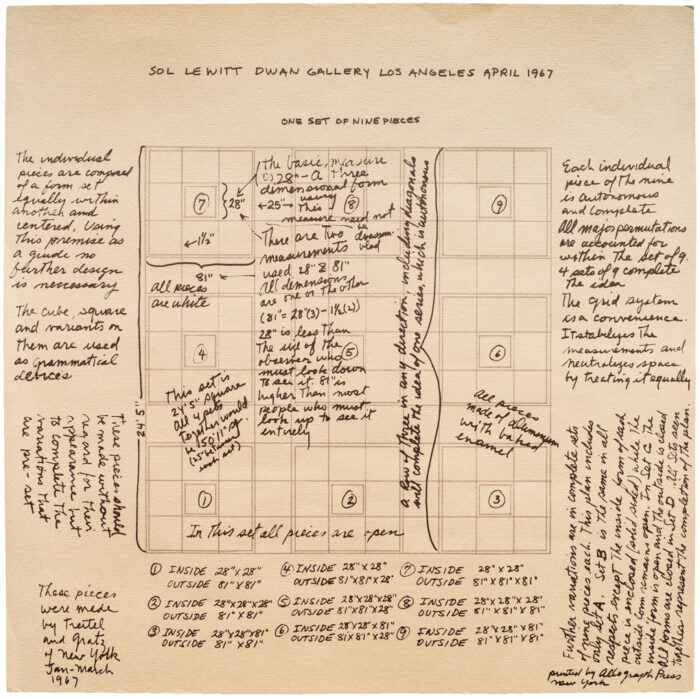 SOL LEWITT DWAN GALLERY LOS ANGELES APRIL 1967
ONE SET OF NINE PIECES
The individual
pieces are composed
of a form set
equally within
another and
centered. Using
this premise as
a guide no
further design
is necessary
The cube, square
and variants on
them are used
as grammatical
devices
These pieces should
be made without
regard for their
appearance but
to complete the
variations that
are pre-set
These pieces
were made
by Treitel
and Gratz
of New York
Jan-March
1967
7
28"
1½"
81"
all pieces
are white
the basic measure
is 28" - a three
dimensional form
25"
using
this
8
measure need not
be
There are two
measurements
used 28" & 81"
all dimensions
are one or the other
(81" = 28"(3) - 1½"(2)
28" is less than
the size of the
observer who
must look down
to see it. 81" is
higher than most
people who must
look up to see it
entirely
a row of three in any direction, including diagonals
will complete the idea of one series, which is autonomous
9
4
5
6
24'5"
This set is
24'5" square
All 4 sets
together would
be 50'11" sq.
(25" between
each set)
All pieces
made of aluminum
with baked
enamel
1
2
3
In this set all pieces are open
Each individual
piece of the nine
is autonomous
and complete
All major permutations
are accounted for
within the set of 9.
4 sets of 9 complete
the idea
The grid system
is a convenience.
It stabilizes the
measurements and
neutralizes space
by treating it equally
Further variations are in complete sets
of nine pieces each. This plan includes
only Set A. Set B is the same in all
respects except the inside form of each
piece is enclosed (solid sided) while the
outside form remains open. In Set C the
inside form is open and the outside is closed
All forms are closed in Set D. All sets seen
together represent the completion of the plan.
1 INSIDE 28"x28"
OUTSIDE 81"x81"
2 INSIDE 28"x28"x28"
OUTSIDE 81"x81"
3 INSIDE 28"x28"x81"
OUTSIDE 81"x81"
4 INSIDE 28"x28"
OUTSIDE 81"x81"x28"
5 INSIDE 28"x28"x28"
OUTSIDE 81"x81"x28"
6 INSIDE 28"x28"x81"
OUTSIDE 81"x81"x28"
7 INSIDE 28"x28"
OUTSIDE 81"x81"x81"
8 INSIDE 28"x28"x28"
OUTSIDE 81"x81"x81"
9 INSIDE 28"x28"x81"
OUTSIDE 81"x81"x81"
printed by Allograph Press
New York